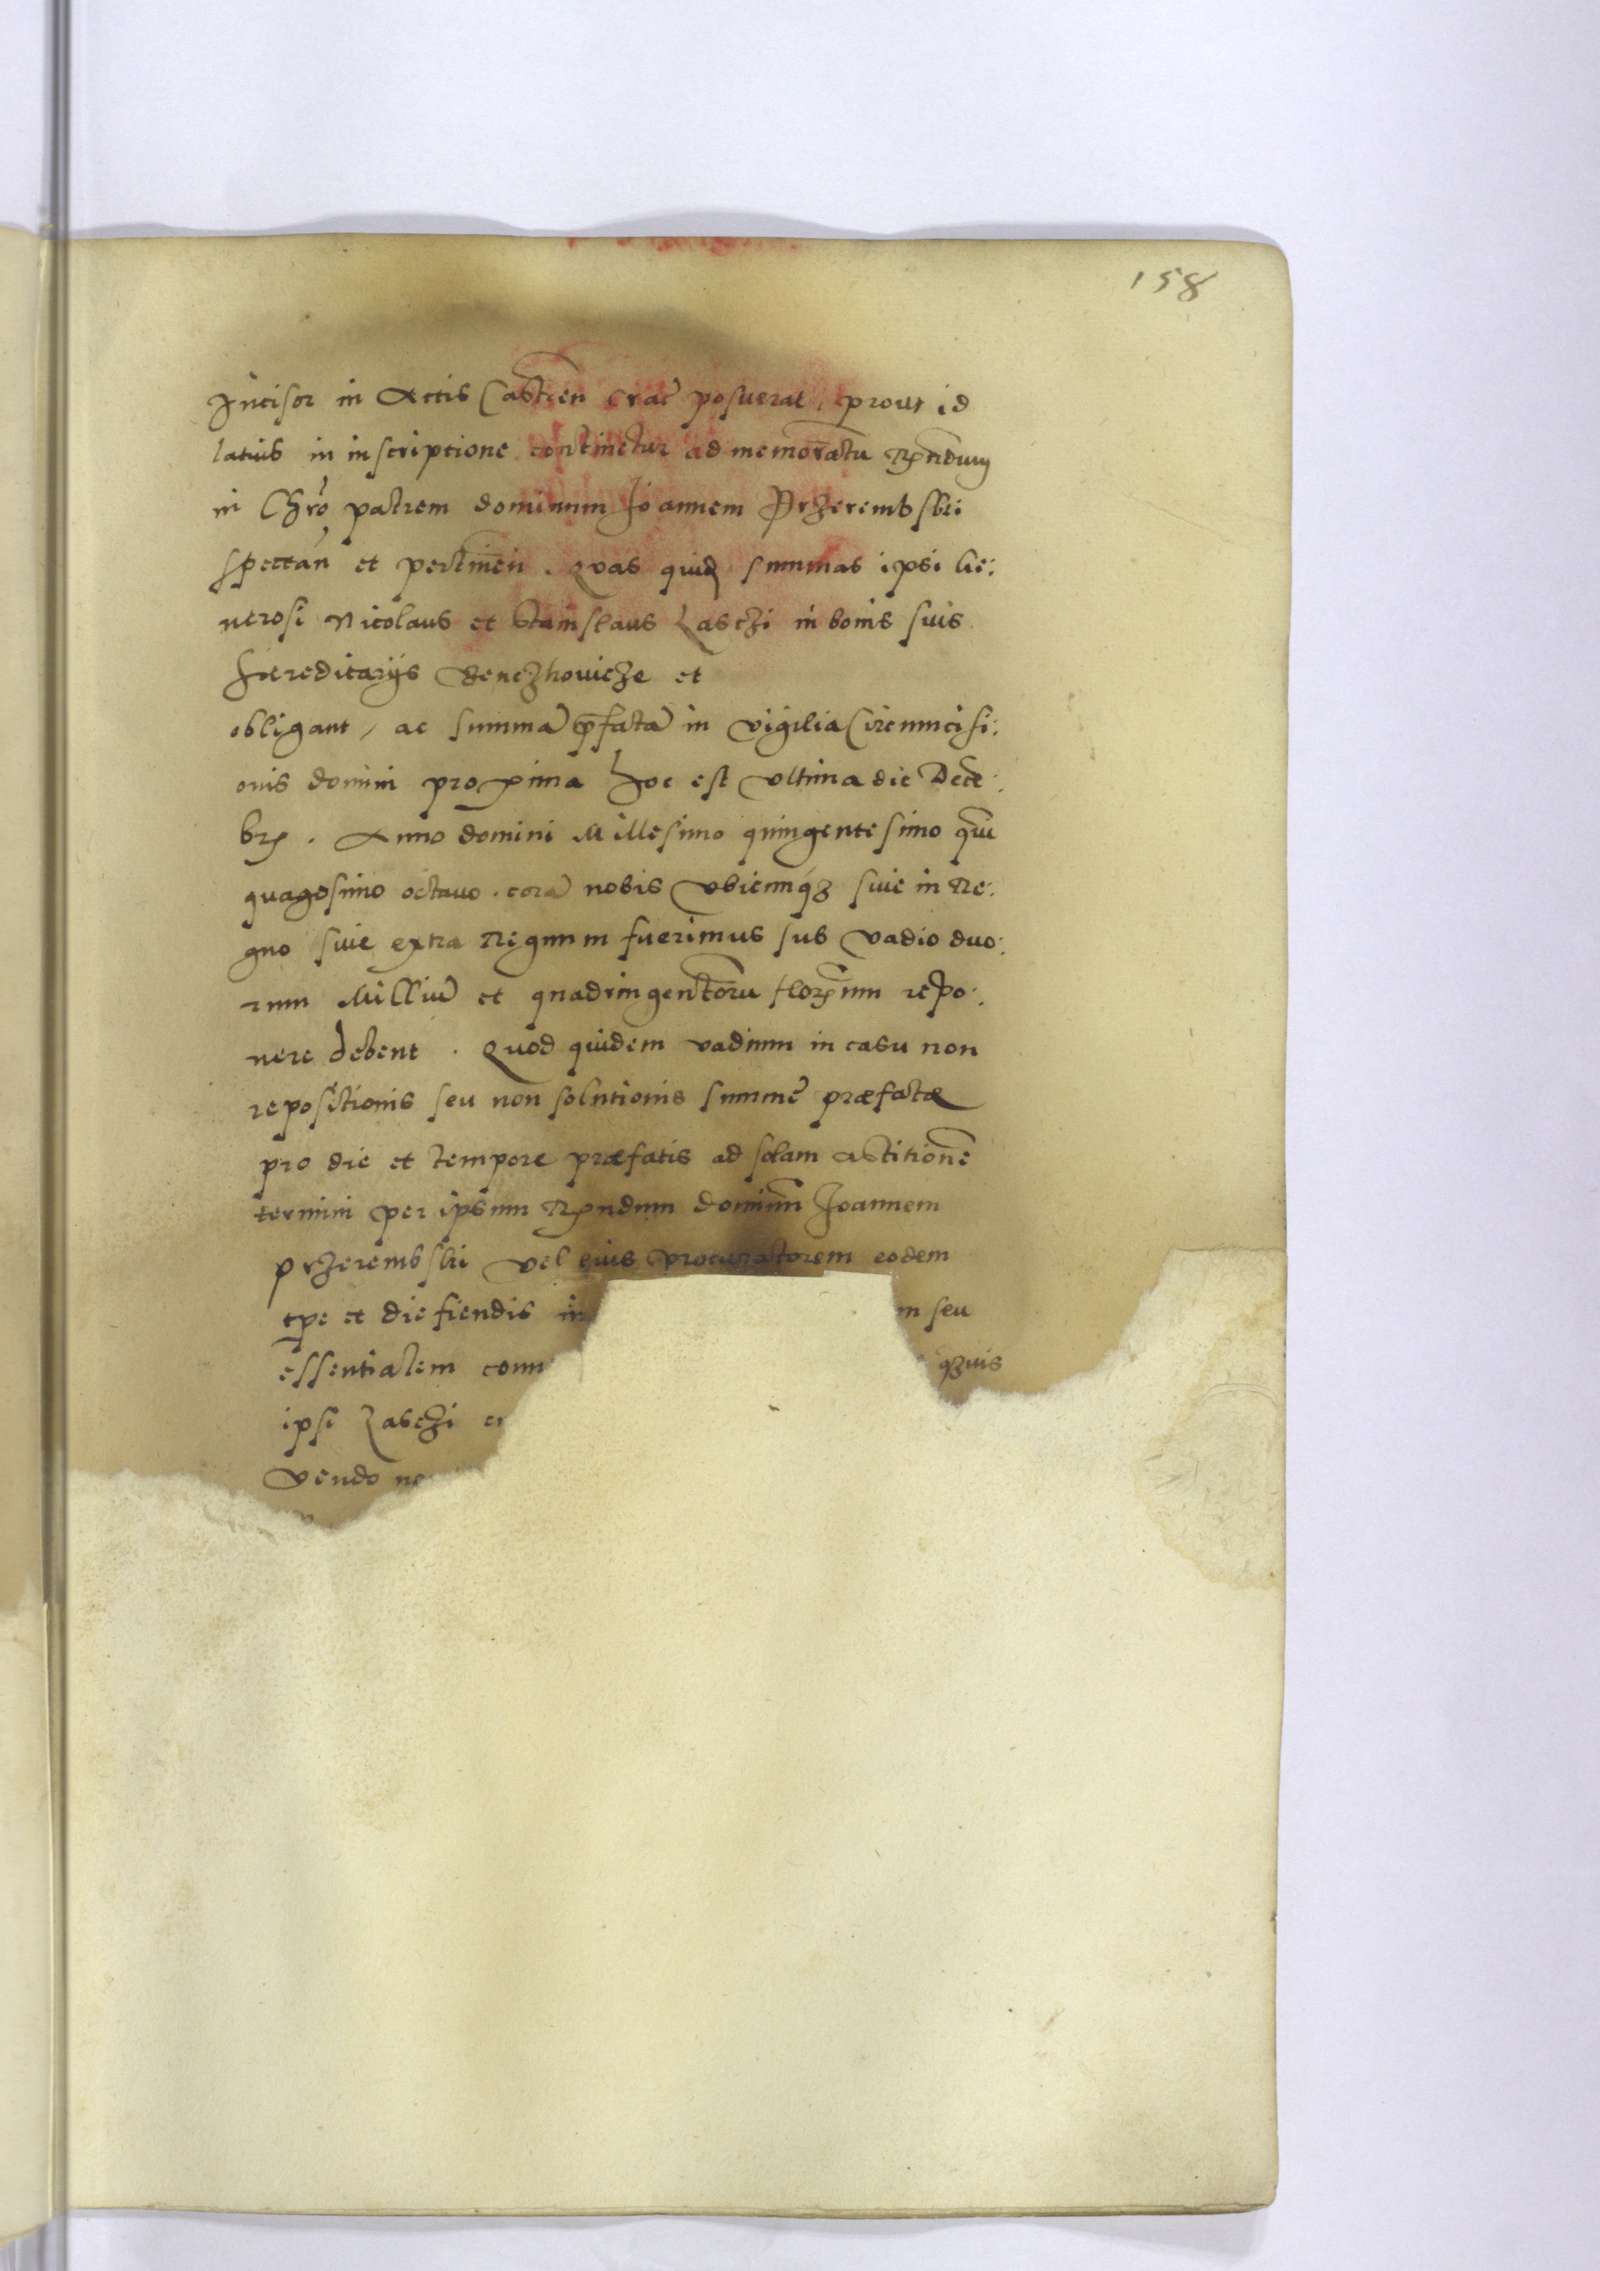 158
Incisor in Actis Castren Crac posuerat, prout id
latius in inscriptione continetur ad memoratu Rndum
in Chro patrem dominum Joannem Przerembski
spectan et pertinen. Quas quid summas ipsi Ge:
nerosi Nicolaus et Stanislaus Laschi in bonis suis
hereditarijs et
obligant, ac summa pfata in vigilia Circumcisi:
onis domini proxima hoc est vltima die Dece:
br. Anno domini Millesimo quingentesimo qui
quagesimo octauo. cora nobis vbicunqz siue in Re:
gno siue extra Regnum fuerimus sub vadio duo:
rum Milliu et quadringentoru florenum repo:
nere debent. Quod quidem vadium in casu non
repositionis seu non solutionis summe præfatæ
pro die et tempore præfatis ad solam astitione
termini per ipsum Rndum dominum Joannem
Przerembski vel eius procuratorem eodem
tpe et die fiendis in m seu
essentialem qzuis
ipsi Laschi
Vendo